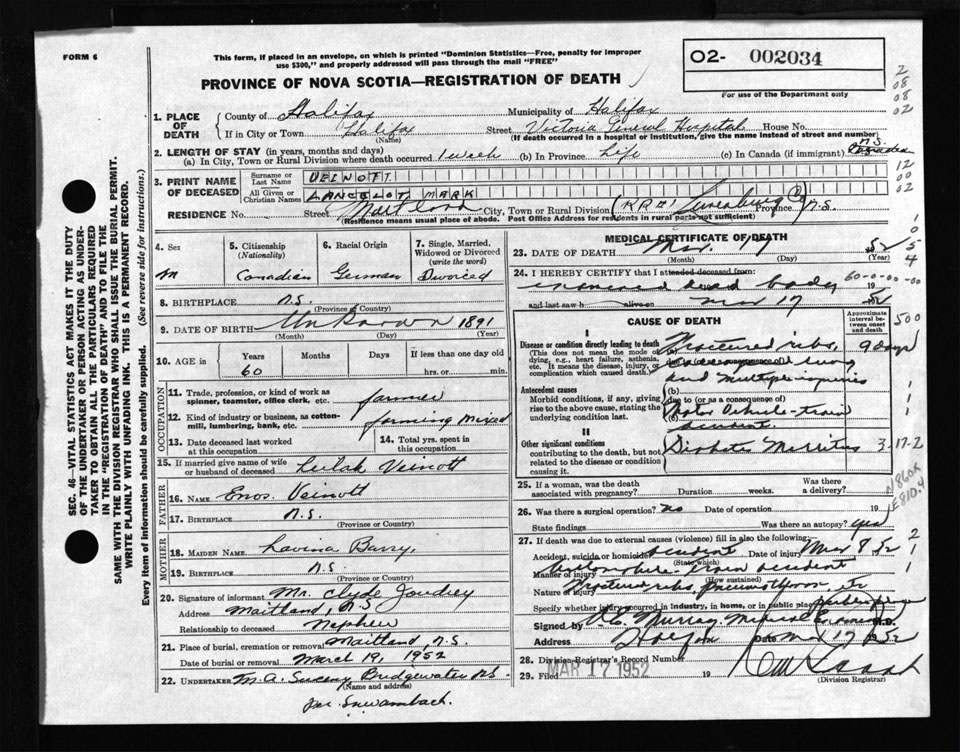 FORM 6
This form, if placed in an envelope, on which is printed "Dominion Statistics—Free, penalty for improper
use $300," and properly addressed will pass through the mail "FREE"
O2- 002034
For use of the Department only
PROVINCE OF NOVA SCOTIA—REGISTRATION OF DEATH
2
08
08
02
1. PLACE OF DEATH
County of Halifax Municipality of Halifax
If in City or Town Halifax Street Victoria General Hospital House No.
(Name) (If death occurred in a hospital or institution, give the name instead of street and number)
2. LENGTH OF STAY (in years, months and days)
(a) In City, Town or Rural Division where death occurred 1 week (b) In Province Life (c) In Canada (if immigrant) N.S. Canada
12
00
02
3. PRINT NAME OF DECEASED
Surname or Last Name VEINOTT
All Given or Christian Names LANCELOT MARK
RESIDENCE No. Street Maitland City, Town or Rural Division (RR#1 Lunenburg) Province N.S.
(Residence means usual place of abode. Post Office Address for residents in rural parts not sufficient)
4. Sex M
5. Citizenship (Nationality) Canadian
6. Racial Origin German
7. Single, Married, Widowed or Divorced (write the word) Divorced
8. BIRTHPLACE N.S.
(Province or Country)
9. DATE OF BIRTH Unknown 1891
(Month) (Day) (Year)
10. AGE in Years 60 Months Days If less than one day old hrs. or min.
OCCUPATION
11. Trade, profession, or kind of work as spinner, teamster, office clerk, etc. farmer
12. Kind of industry or business, as cotton-mill, lumbering, bank, etc. farming mixed
13. Date deceased last worked at this occupation
14. Total yrs. spent in this occupation
15. If married give name of wife or husband of deceased Leilah Veinott
FATHER
16. NAME Enos Veinott
17. BIRTHPLACE N.S.
(Province or Country)
MOTHER
18. MAIDEN NAME Lavina Barry
19. BIRTHPLACE N.S.
(Province or Country)
20. Signature of informant Mr. Clyde Joudrey
Address Maitland, N.S.
Relationship to deceased Nephew
21. Place of burial, cremation or removal Maitland, N.S.
Date of burial or removal March 19, 1952
22. UNDERTAKER M.A. Bridgewater N.S.
(Name and address)
per
MEDICAL CERTIFICATE OF DEATH
23. DATE OF DEATH Mar. 17 1952
(Month) (Day) (Year)
24. I HEREBY CERTIFY that I attended deceased from:
examined dead body 19
and last saw h alive on Mar 17 1952
60-0-00-00
CAUSE OF DEATH
Approximate interval between onset and death
I
Disease or condition directly leading to death
(This does not mean the mode of dying, e.g., heart failure, asthenia, etc. It means the disease, injury, or complication which caused death.)
(a) Fractured ribs, 9 days
due to (or as a consequence of) lung
and multiple injuries
Antecedent causes
Morbid conditions, if any, giving rise to the above cause, stating the underlying condition last.
(b)
due to (or as a consequence of)
Motor vehicle-train
accident.
II
Other significant conditions
contributing to the death, but not related to the disease or condition causing it.
Diabetes Mellitus 3-17-2
25. If a woman, was the death associated with pregnancy? Duration weeks. Was there a delivery?
26. Was there a surgical operation? No Date of operation 19
State findings Was there an autopsy? Yes
N860X
E810.4
27. If death was due to external causes (violence) fill in also the following:
Accident, suicide or homicide? accident Date of injury Mar 8 52
(State which)
Manner of injury Motor vehicle-train accident
(How sustained)
Nature of injury Fractured ribs, pneumothorax,
Specify whether injury occurred in industry, in home, or in public place
Signed by Murray, Medical Examiner M.D.
Address Halifax Date Mar 17 1952
28. Division Registrar's Record Number
29. Filed MAR 17 1952 19
(Division Registrar)
SEC. 46—VITAL STATISTICS ACT MAKES IT THE DUTY
OF THE UNDERTAKER OR PERSON ACTING AS UNDER-
TAKER TO OBTAIN ALL THE PARTICULARS REQUIRED
IN THE "REGISTRATION OF DEATH" AND TO FILE THE
SAME WITH THE DIVISION REGISTRAR WHO SHALL ISSUE THE BURIAL PERMIT.
WRITE PLAINLY WITH UNFADING INK. THIS IS A PERMANENT RECORD.
Every item of information should be carefully supplied. (See reverse side for instructions.)